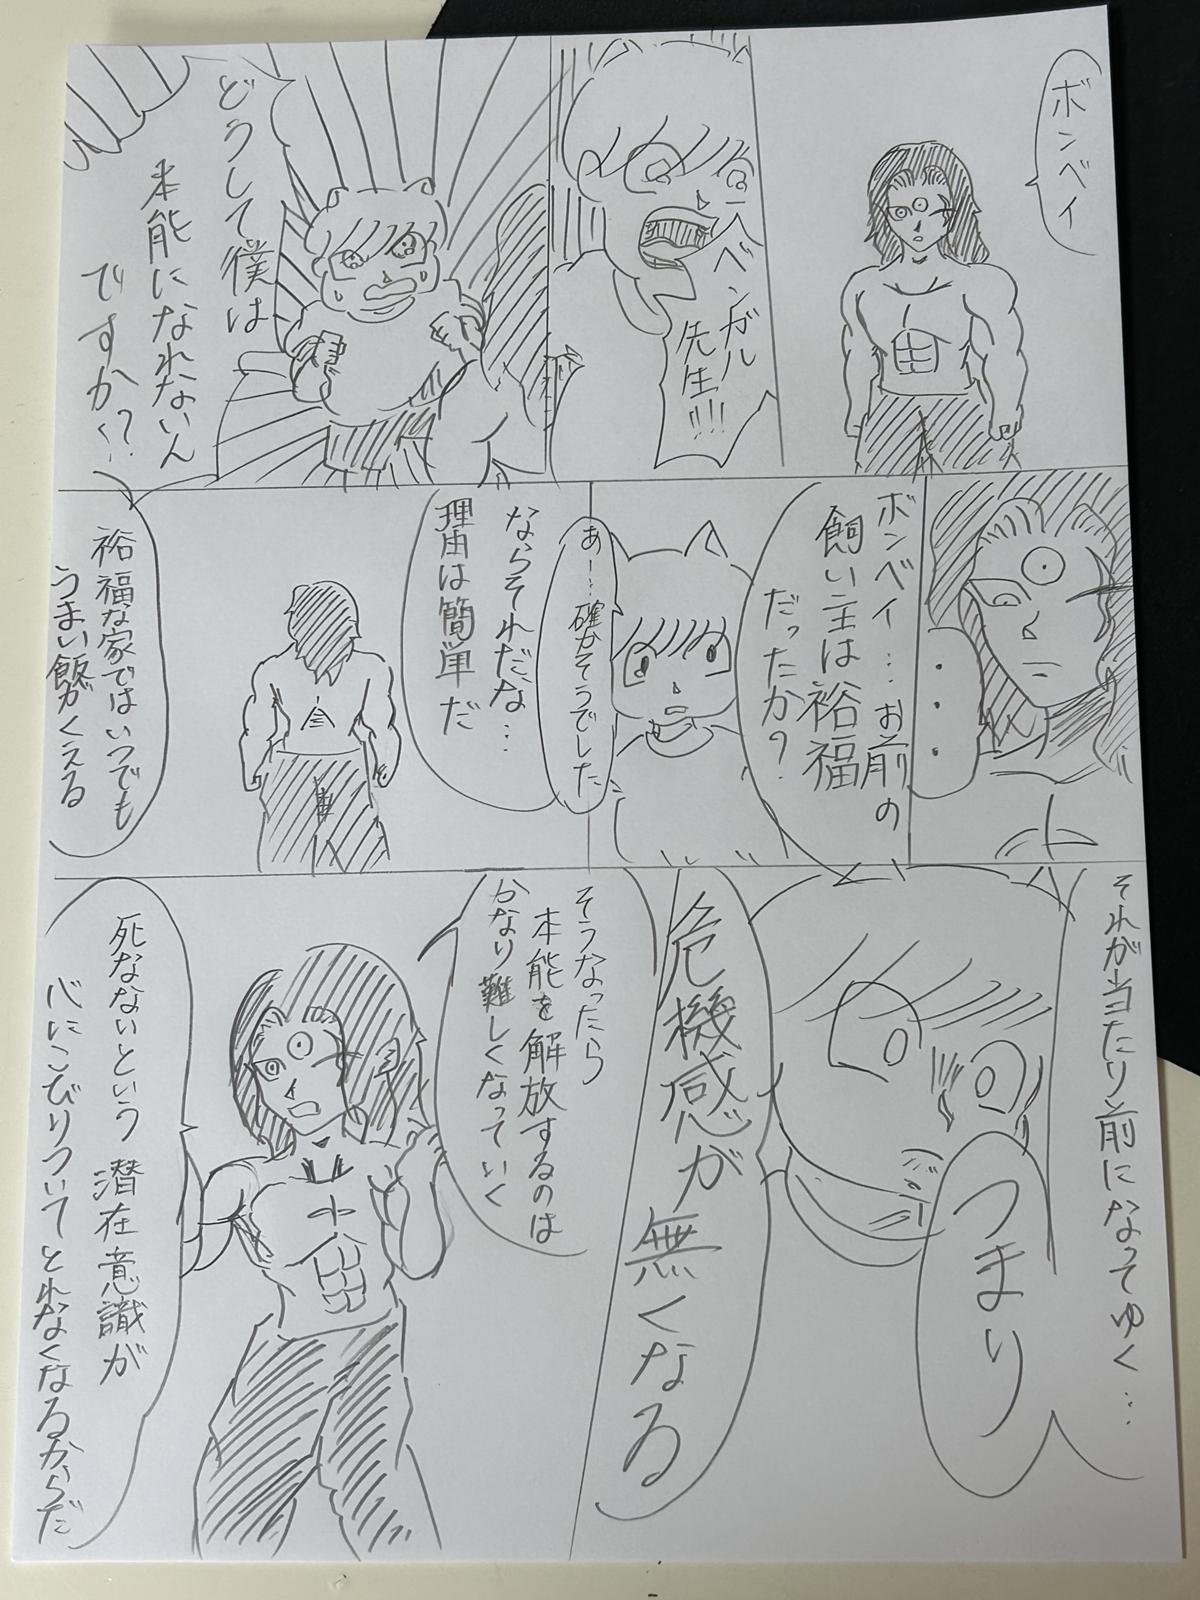 ボンベイ
ベンガル
先生!!!
どうして僕は
本能になれないん
ですか!?
・・・
ボンベイ…お前の
飼い主は裕福
だったか?
あー…確かそうでした
ならそれだな…
理由は簡単だ
裕福な家ではいつでも
うまい飯がくえる
それが当たり前になってゆく…
つまり
危機感が
無くなる
そうなったら
本能を解放するのは
かなり難しくなっていく
死なないという潜在意識が
心にこびりついてとれなくなるからだ